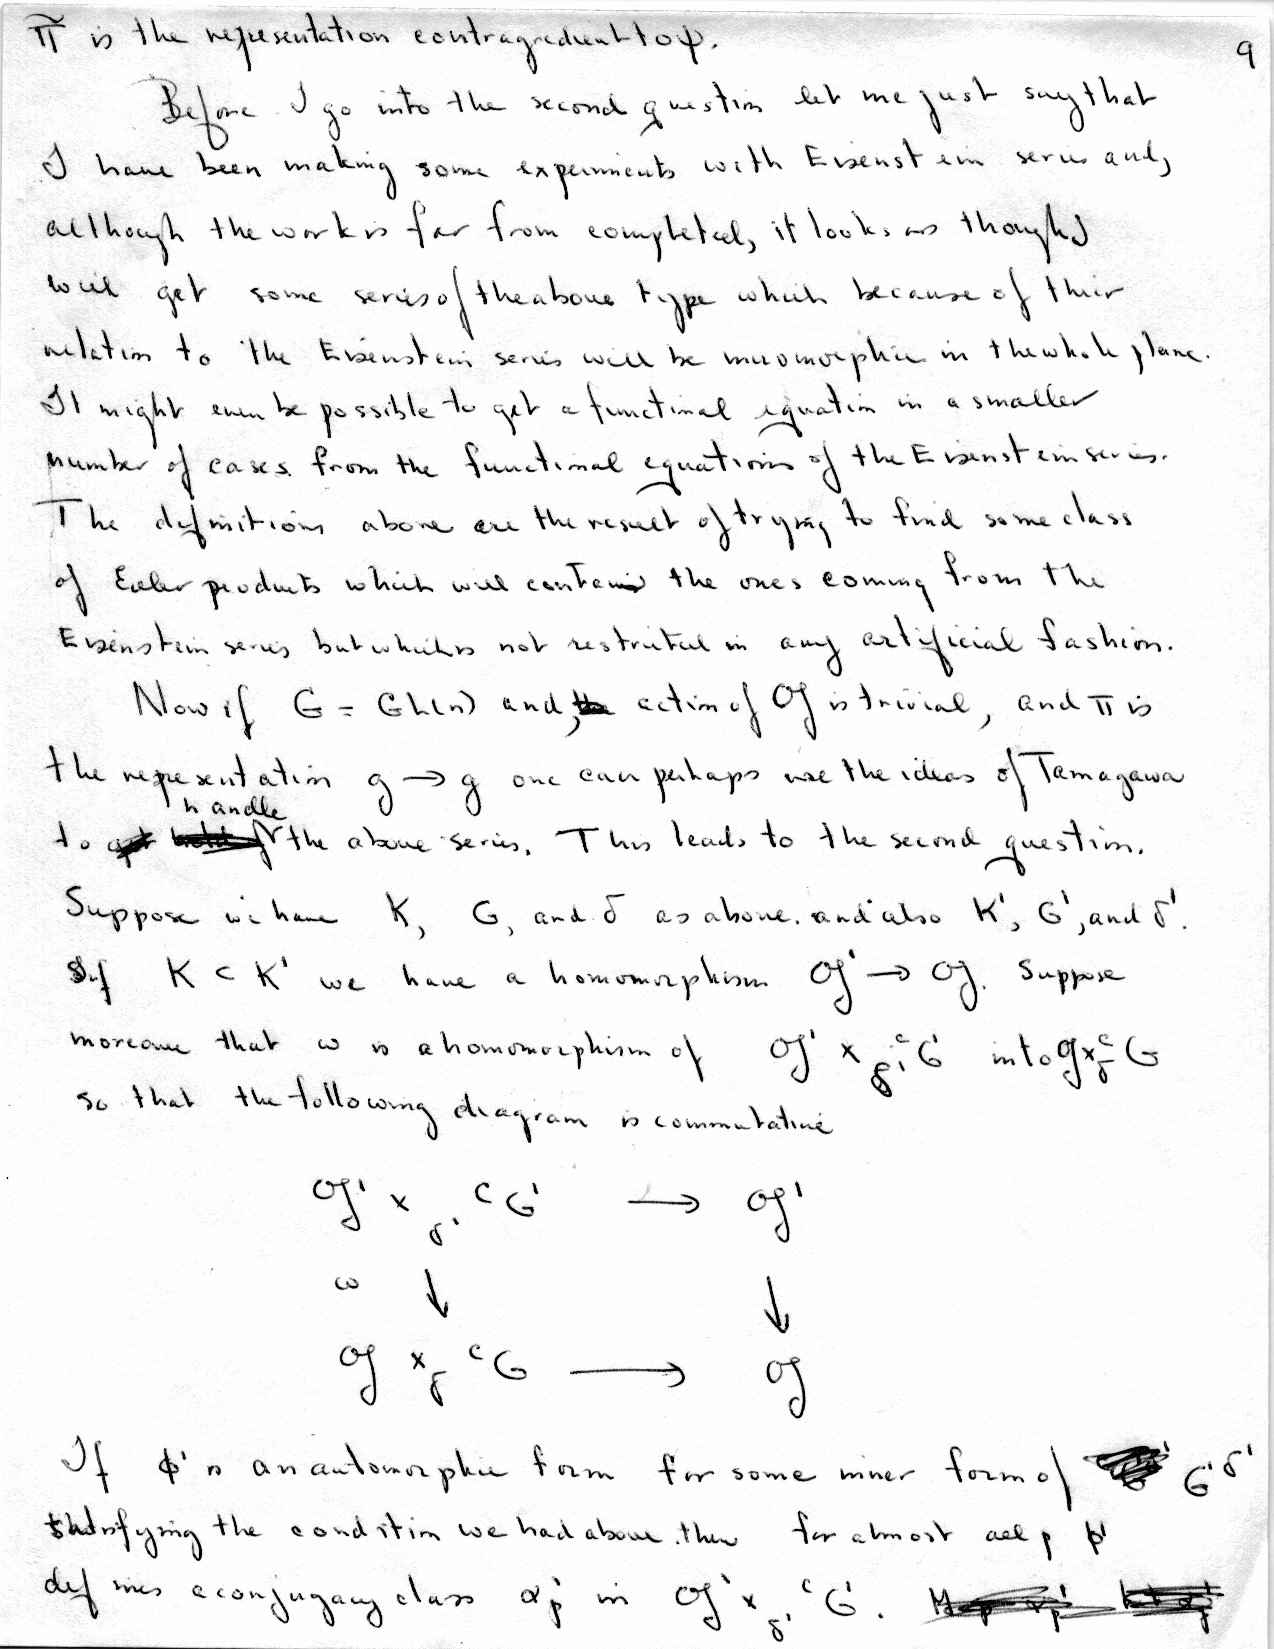 π̃ is the representation contragredient to φ.
9
Before I go into the second question let me just say that
I have been making some experiments with Eisenstein series and,
although the work is far from completed, it looks as though I
will get some series of the above type which because of their
relation to the Eisenstein series will be meromorphic in the whole plane.
It might even be possible to get a functional equation in a smaller
number of cases from the functional equations of the Eisenstein series.
The definitions above are the result of trying to find some class
of Euler products which will contain the ones coming from the
Eisenstein series but which is not restricted in any artificial fashion.
Now if G = GL(n) and, the action of 𝔤 is trivial, and π is
the representation g → g one can perhaps use the ideas of Tamagawa
to get hold of handle the above series. This leads to the second question.
Suppose we have K, G, and δ as above. and also K', G', and δ'.
If K ⊂ K' we have a homomorphism 𝔤' → 𝔤. Suppose
moreover that ω is a homomorphism of 𝔤' ×_δ' ᶜG' into 𝔤 ×_δ ᶜG
so that the following diagram is commutative
𝔤' ×_δ' ᶜG' → 𝔤'
ω ↓ ↓
𝔤 ×_δ ᶜG → 𝔤
If φ' is an automorphic form for some inner form of G'^δ'
satisfying the condition we had above. then for almost all p φ'
defines a conjugacy class α'_p in 𝔤' ×_δ' ᶜG'.